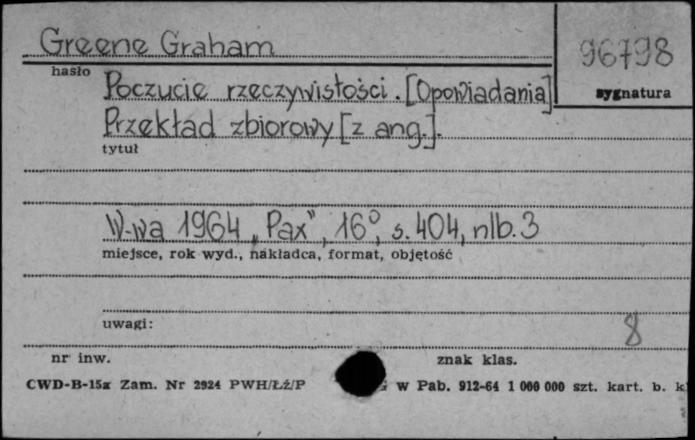 Greene Graham
96798
hasło
sygnatura
Poczucie rzeczywistości. [Opowiadania]
Przekład zbiorowy [z ang.].
tytuł
W-wa 1964 „Pax”, 16°, s. 404, nlb. 3
miejsce, rok wyd., nakładca, format, objętość
uwagi:
8
nr inw.
znak klas.
CWD-B-15a Zam. Nr 2924 PWH/Łź/P G w Pab. 912-64 1 000 000 szt. kart. b. k